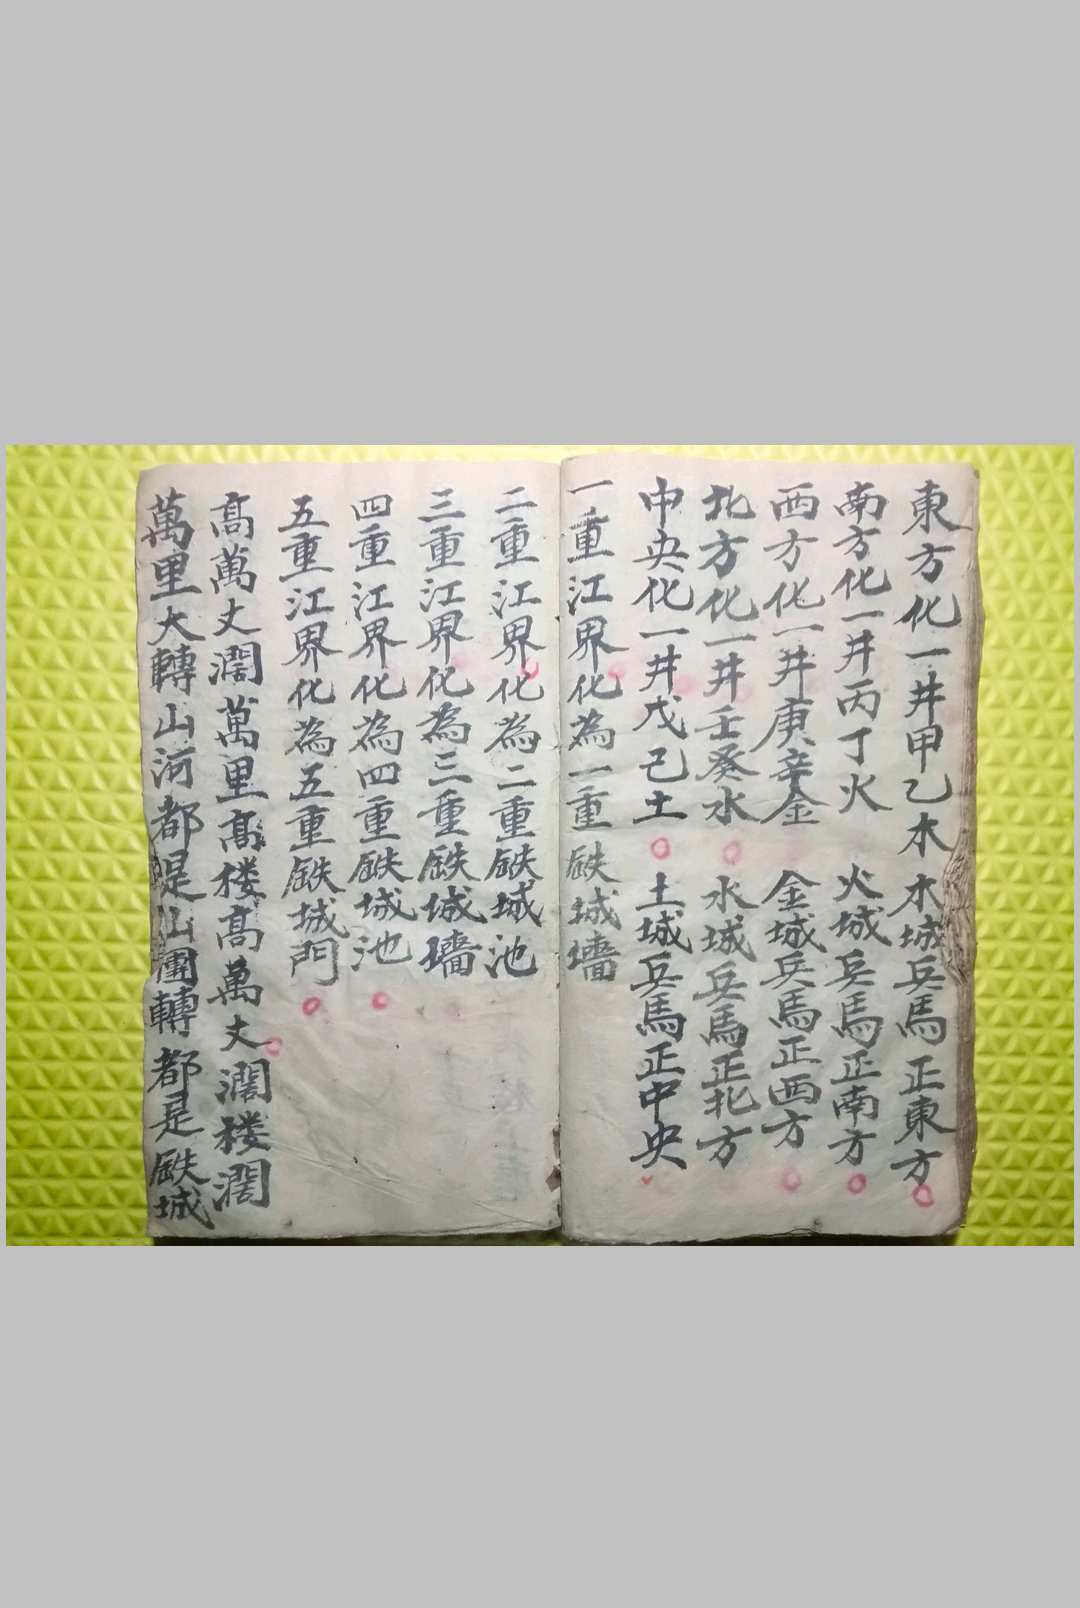 東方化一井甲乙木 木城兵馬正東方
南方化一井丙丁火 火城兵馬正南方
西方化一井庚辛金 金城兵馬正西方
北方化一井壬癸水 水城兵馬正北方
中央化一井戊己土 土城兵馬正中央
一重江界化為一重䥫城墻
二重江界化為二重䥫城池
三重江界化為三重䥫城墻
四重江界化為四重䥫城池
五重江界化為五重䥫城門
髙萬丈濶萬里髙楼髙萬丈濶楼濶
萬里大轉山河都是山團轉都是䥫城